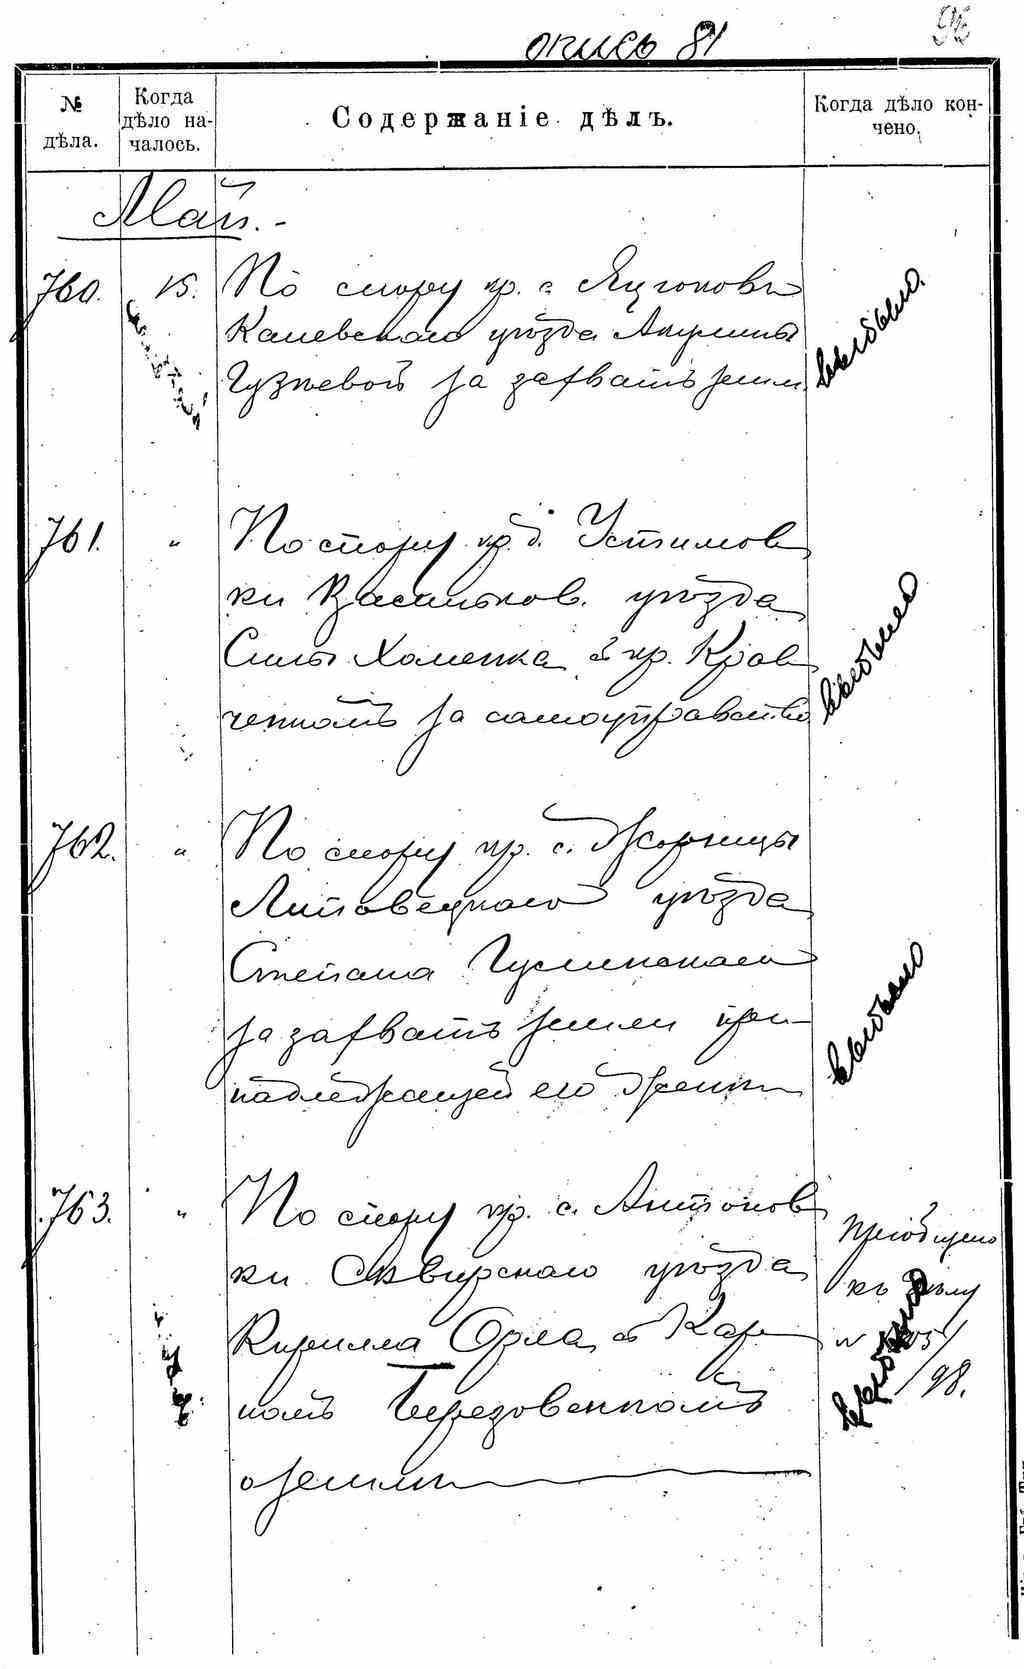 опись 81
96
№ дѣла.
Когда дѣло на-чалось.
Содержаніе дѣлъ.
Когда дѣло кон-чено.
Май.
760. 15. По спору кр. с. Яцюковъ
Каневскаго уѣзда Акулины
Гузѣевой за захватъ земли
выбыло.
761. " По спору кр. д. Устимов
ки Васильков. уѣзда
Силы Хоменка съ кр. Крав
ченкомъ за самоуправство
выбыло
762. " По спору кр. с. Жорницы
Липовецкаго уѣзда
Степана Гуслинскаго
за захватъ земли при-
надлежащей его жени
выбыло
763. " По спору кр. с. Антонов
ки Сквирскаго уѣзда
Кирилла Орла съ Кар
помъ Березовенкомъ
о земли
Пріобщено
къ дѣлу
№
/98.
выбыло